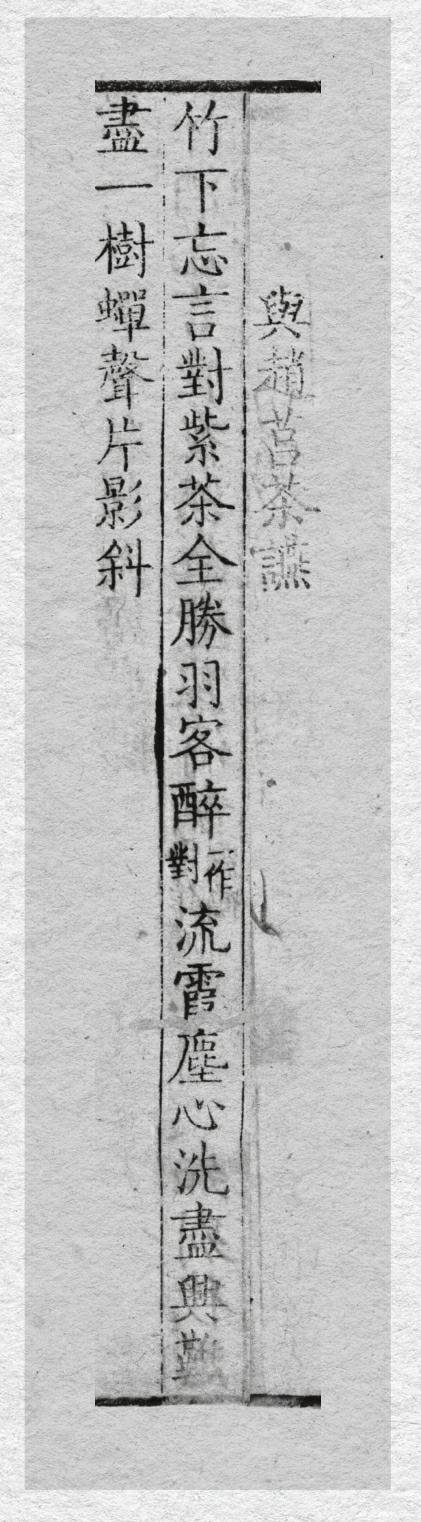 與趙莒茶讌
竹下忘言對紫茶全勝羽客醉一作對流霞塵心洗盡興難
盡一樹蟬聲片影斜